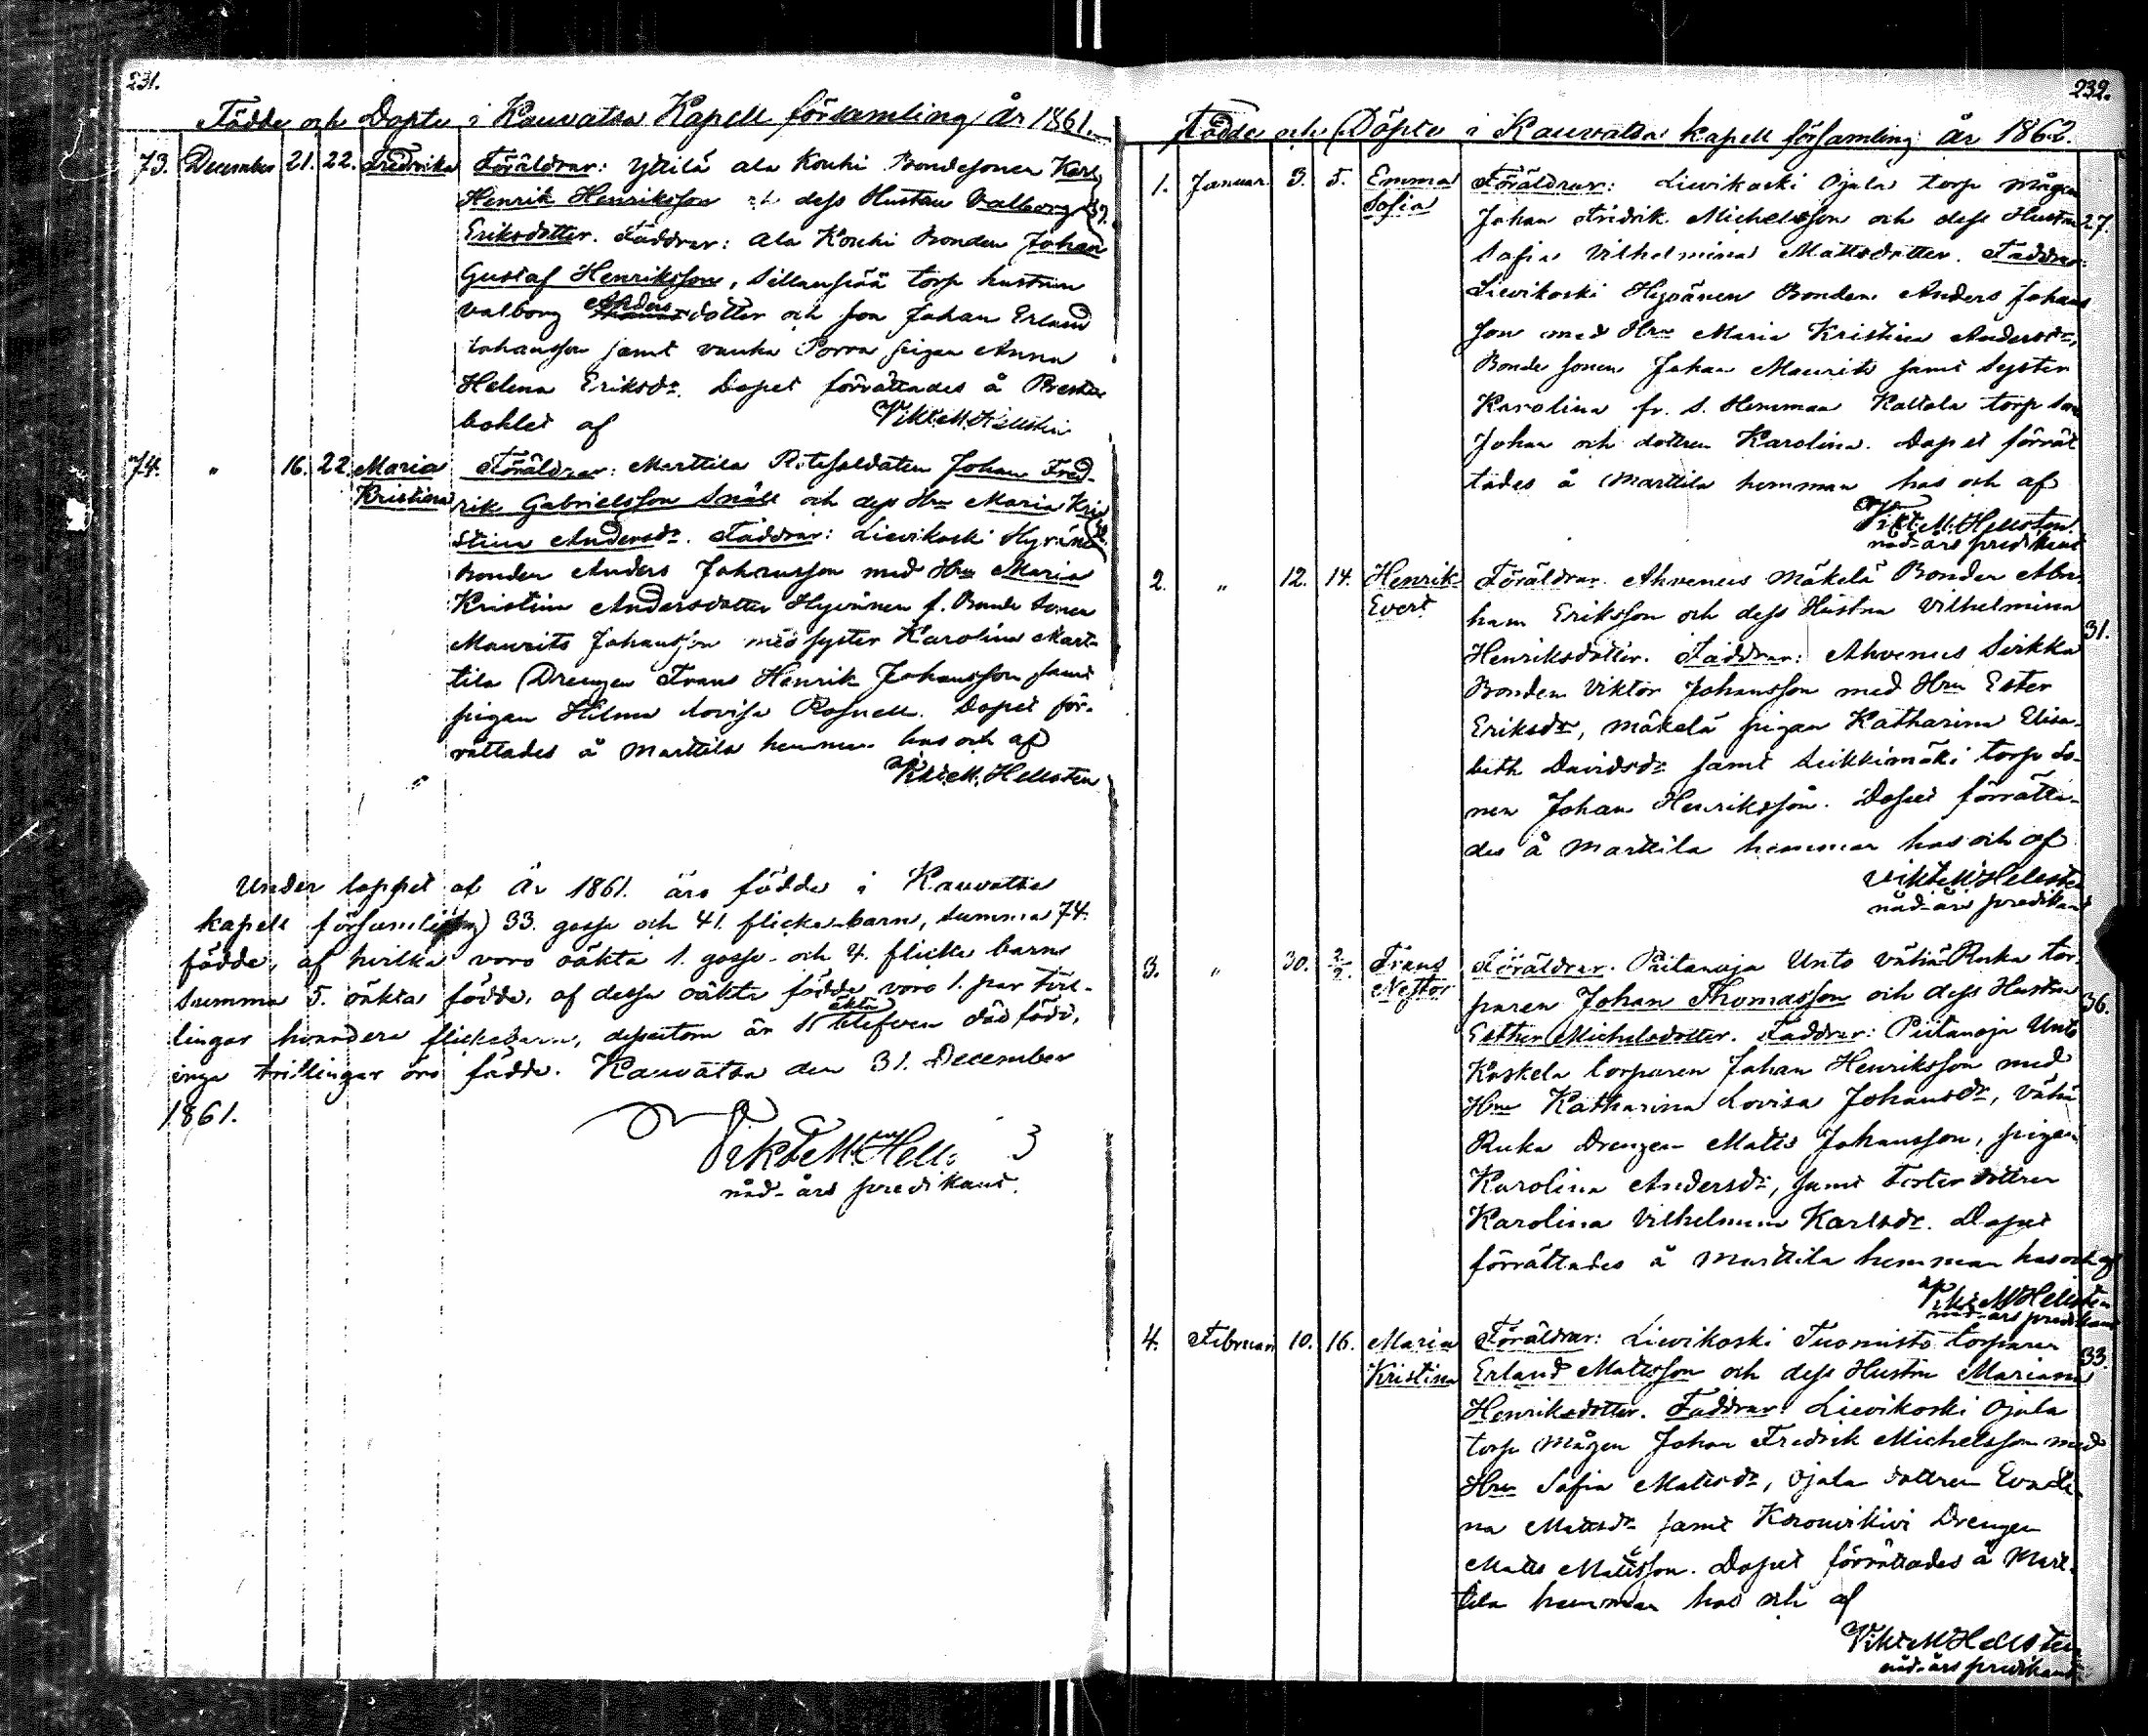 231.
Födde och Döpte i Kauvatsa Kapell församling år 1861.
73. December 21. 22. Fredrika Föräldrar: Yttilä ala Kouhi Bondesonen Karl
Henrik Henriksson och dess Hustru Valborg
Eriksdotter. Faddrar: Ala Kouhi Bonden Johan
Gustaf Henriksson, Sillanpää torp hustrun
Valborg Andersdotter och son Johan Erland
Johansson samt Porra pigan Anna
Helena Eriksdr. Dopet förrättades å Preste
bohlet af Vikt. M. Hellstén
74. " 16. 22. Maria Föräldrar: Marttila Rotesoldaten Johan Fred-
Kristina rik Gabrielsson Snäll och dess Hru Maria Kri
stina Andersdr. Faddrar: Lievikoski Hyvänen
Bonden Anders Johansson med Hru Maria
Kristina Andersdotter Hyvänen f. Bonde Sonen
Maurits Johansson med syster Karolina Mart-
tila Drengen Frans Henrik Johansson samt
pigan Hilma Lovisa Rosnell. Dopet för-
rättades å Marttila hemman hos och af
Vikt. M. Hellsten
Under loppet af År 1861. äro födde i Kauvatsa
kapell församling 33. gosse och 41. flicke-barn, summa 74.
födde, af hvilka voro oäkta 1. gosse- och 4. flicke barn
summa 5. oäkta födde, af dessa oäkta födde voro 1. par tvil-
lingar hvardera flickebarn, dessutom är 1 äkta dödfödd,
inga trillingar äro födde. Kauvatsa den 31. December
1861.
Vikt. M. Hells
nåd-års predikant.
232.
Födde och Döpte i Kauvatsa kapell församling år 1862.
1. Januar. 3. 5. Emma Föräldrar: Lievikoski Ojala torp mågen
Sofia Johan Fridrik Michelsson och dess Hustru 27.
Sofia Vilhelmina Mattsdotter. Faddrar:
Lievikoski Hyvänen Bonden Anders Johans
son med Hru Maria Kristina Andersdr,
Bonde sonen Johan Maurits samt Syster
Karolina fr. S. Hemman Kattala torp son
Johan och dottren Karolina. Dopet förrät
tades å Marttila hemman hos och af
Vikt. M. Hellsten
nåd-års predikant
2. " 12. 14. Henrik Föräldrar. Ahvenus Mäkelä Bonden Abra
Evert ham Eriksson och dess Hustru Vilhelmina 31.
Henriksdotter. Faddrar: Ahvenus Sirkka
Bonden Viktor Johansson med Hru Ester
Eriksdr, Mäkelä pigan Katharina Elisa-
beth Davidsdr samt Leikkimäki torp So-
nen Johan Henriksson. Dopet förrätta-
des å Marttila hemman hos och af
Vikt. M. Hellsten
nåd-års predikant
3. " 30. 2/2. Frans Föräldrar. Piitanoja Unto Vähä Ruka tor-
Nestor paren Johan Thomasson och dess Hustru 36.
Esther Michelsdotter. Faddrar: Piitanoja Unto
Koskela torparen Johan Henriksson med
Hru Katharina Lovisa Johansdr, Vähä
Ruka Drengen Matts Johansson, pigan
Karolina Andersdr, samt Foster dottren
Karolina Vilhelmina Karlsdr. Dopet
förrättades å Marttila hemman hos och af
Vikt. M. Hellsten
nåd-års predikant
4. Februari 10. 16. Maria Föräldrar: Lievikoski Tuomisto torparen
Kristina Erland Mattsson och dess Hustru Mariana 33.
Henriksdotter. Faddrar: Lievikoski Ojala
torp Mågen Johan Fredrik Michelsson med
Hru Sofia Mattsdr, Ojala dottren Evali-
na Mattsdr samt Drengen
Matts Mattsson. Dopet förrättades å Mart-
tila hemman hos och af
Vikt. M. Hellsten
nåd-års predikant